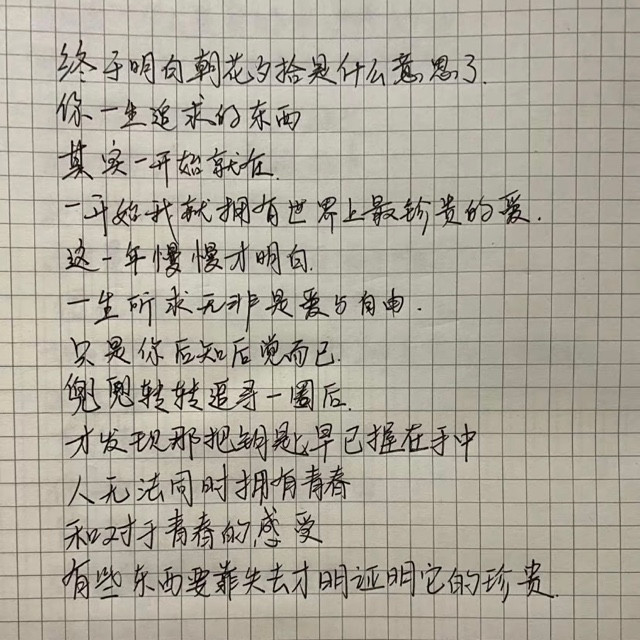 终于明白朝花夕拾是什么意思了.
你一生追求的东西
其实一开始就在.
一开始我就拥有世界上最珍贵的爱.
这一年慢慢才明白.
一生所求无非是爱与自由.
只是你后知后觉而已.
兜兜转转追寻一圈后.
才发现那把钥匙早已握在手中
人无法同时拥有青春
和对于青春的感受
有些东西要靠失去才明证明它的珍贵.